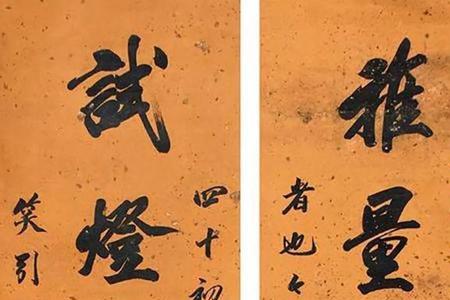 雅量
者也々
四十初
試燈
笑引